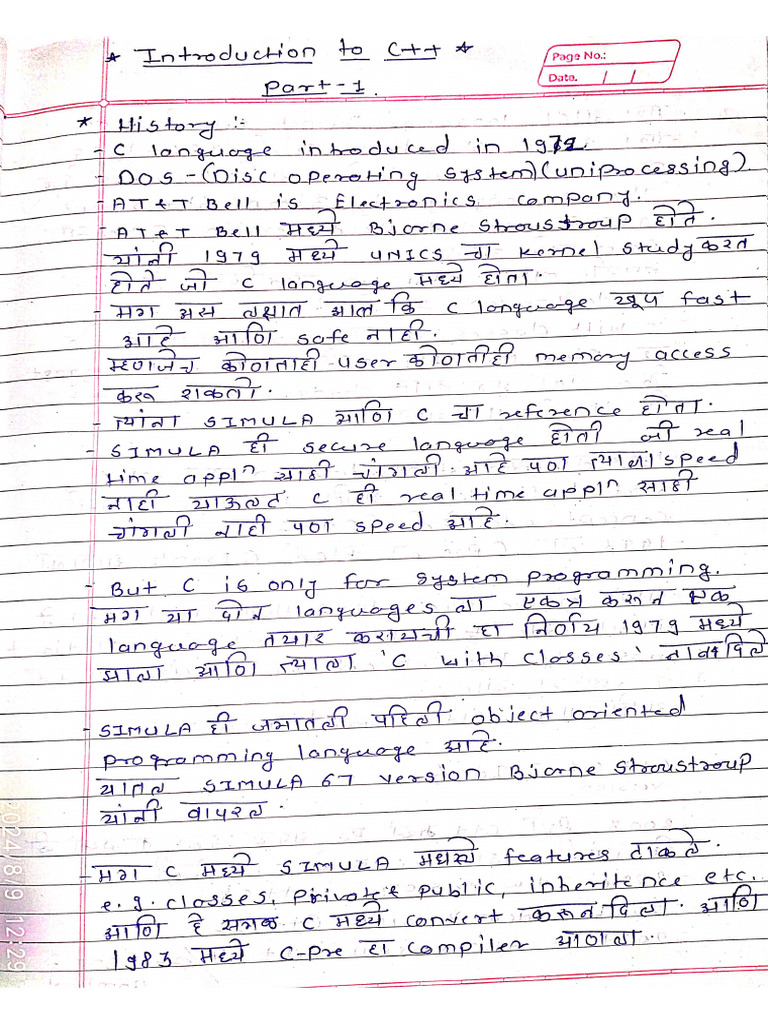 * Introduction to C++ *
Page No.:
Date. / /
Part-1.
* History :-
- C language introduced in 1972
- DOS - (Disc operating system) (uniprocessing)
- AT&T Bell is Electronics company.
- AT&T Bell मध्ये Bjarne Stroustroup होते.
यांनी 1979 मध्ये UNICS चा kernel study करत
होते जो C language मध्ये होता.
- मग अस लक्षात आलं कि C language खूप fast
आहे आणि safe नाही.
म्हणजेच कोणताही user कोणतीही memory access
करू शकतो.
- त्यांना SIMULA आणि C चा reference होता.
- SIMULA ही secure language होती जी real
time appln साठी चांगली आहे पण त्याला speed
नाही याउलट C ही real time appln साठी
चांगली नाही पण speed आहे.
- But C is only for system programming.
मग या दोन languages ला एकत्र करून एक
language तयार करायची हा निर्णय 1979 मध्ये
झाला आणि त्याला 'C with classes' नाव दिले
- SIMULA ही जगातली पहिली object oriented
programming language आहे.
यातल SIMULA 67 version Bjarne Stroustroup
यांनी वापरल.
- मग C मध्ये SIMULA मधले features टाकले.
e.g. classes, private, public, inheritence etc.
आणि हे सगळ C मध्ये convert करून दिला. आणि
1983 मध्ये C-pre हा compiler आणला.
2024/8/9 12:29